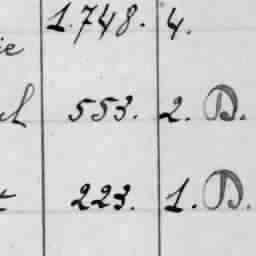 1.748. 4.
ie
553. 2. D.
223. 1. D.